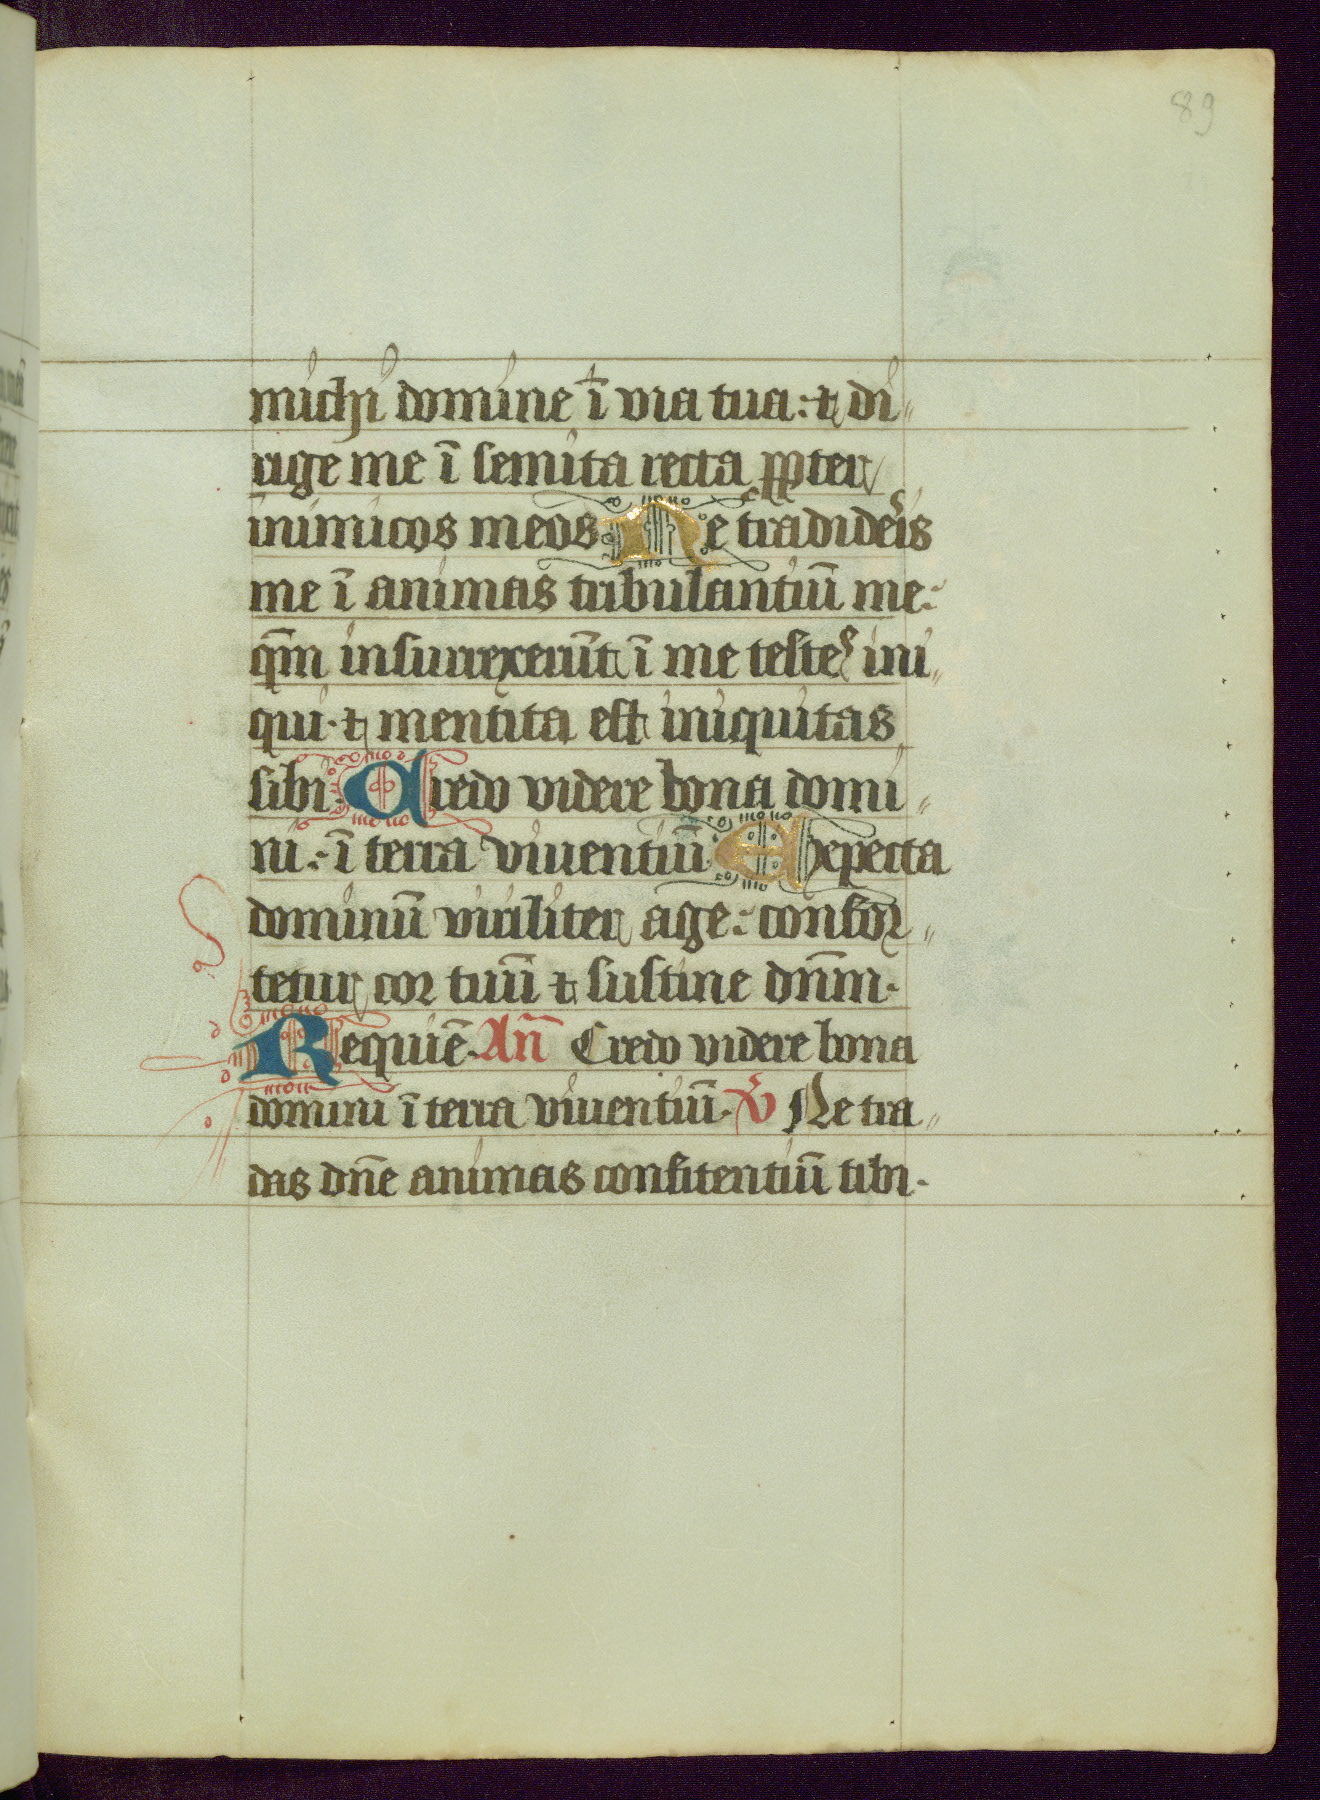 89
michi domine ī via tua: ⁊ di〃
rige me ī semita recta ꝓpter
inimicos meos Ne tradideris
me ī animas tribulantiū me:
qm̄ insurrexerūt ī me testes ini〃
qui· ⁊ mentita est iniquitas
sibi: Credo videre bona domi〃
ni: ī terra viventiū· Exepecta
dominū viriliter age: confor〃
tetur cor tuū ⁊ sustine dn̄m·
Requiē· An̄ Credo videre bona
domini ī terra viventiū· V̄ Ne tra〃
das dn̄e animas confitentiū tibi·